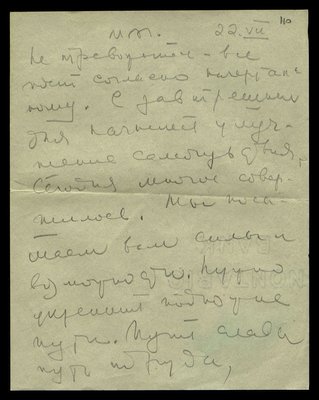 110
22.VII
Не тревожьтесь - все
идет согласно начертан-
ному. С завтрашнего
дня начнется улуч-
шение самочувствия,
Сегодня многое совер-
шилось. Мы посы-
лаем вам силы и
возможности. Нужно
укрепить подножие
пути. Путь славы
путь труда,